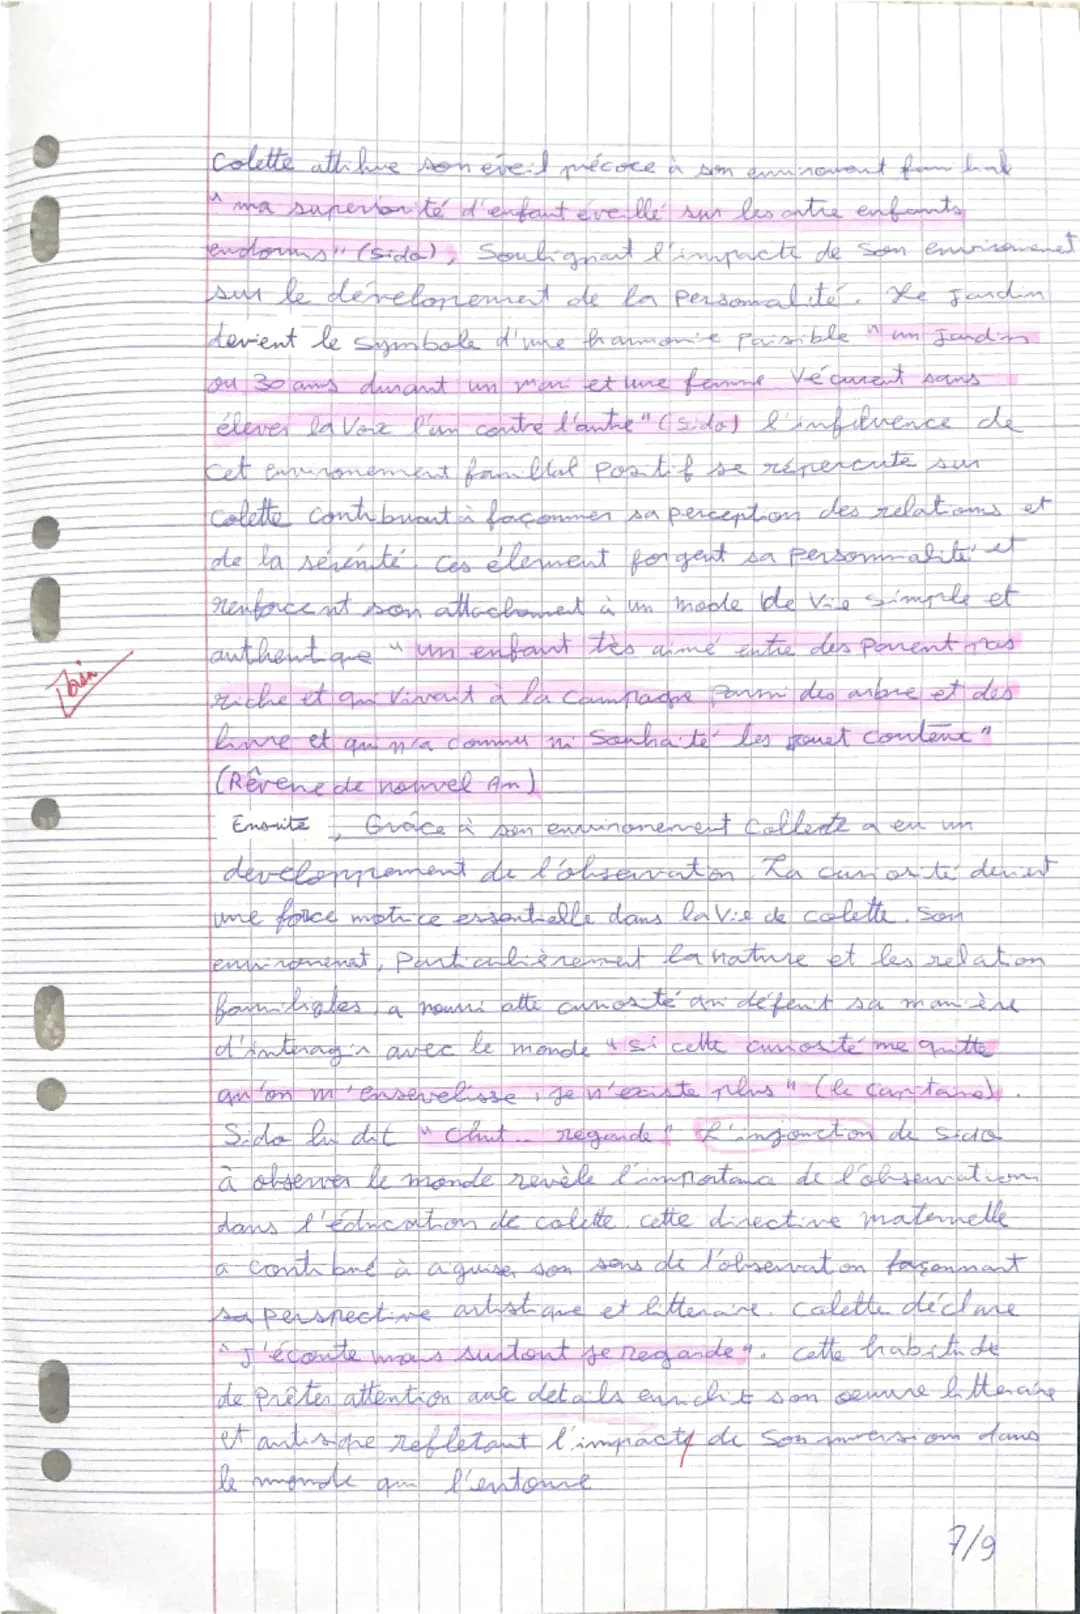 Colette attribue son éveil précoce à son environant familial
"ma superiorité d'enfant éveillé sur les autre enfants
endormis" (Sido), Soulignant l'impacte de son environement
sur le dévelopement de la personnalité. Le Jardin
devient le symbole d'une harmonie paisible "un Jardin
ou 30 ans durant un mari et une femme vécurent sans
élever la voix l'un contre l'autre" (Sido) l'influence de
cet environement familial positif se répercute sur
Colette contribuant à façonner sa perception des relations et
de la sérénité. Ces élement forgent sa personnalité et
renforcent son attachement à un mode de vie simple et
authentique "un enfant très aimé entre des parent pas
riche et qui vivait à la campagne parmi des arbre et des
livre et qui n'a connu ni souhaité les jouet couteux"
(Rêverie de nouvel An)
Bien
Ensuite, Grâce à son environement Collette a eu un
developpement de l'observation. La curiosité devient
une force motrice essentielle dans la vie de colette. Son
environenat, Particulièrement la nature et les relation
familiales, a nourri cette curiosité qui défent sa manière
d'interagir avec le monde "si cette curiosité me quitte
qu'on m'ensevelisse, je n'existe plus" (le Capitaine).
Sido lui dit "Chut.. regarde" L'injonction de Sido
à observer le monde revèle l'importance de l'observation
dans l'éducation de colette. cette directive maternelle
a contribué à aguiser son sens de l'observation façonnant
sa perspective artistique et litteraire. Colette déclare
"J'écoute mais surtout je regarde". Cette habitude
de prêter attention aux details enrichit son oeuvre litteraire
et artisique refletant l'impacte de son imersion dans
le monde qui l'entoure
7/9